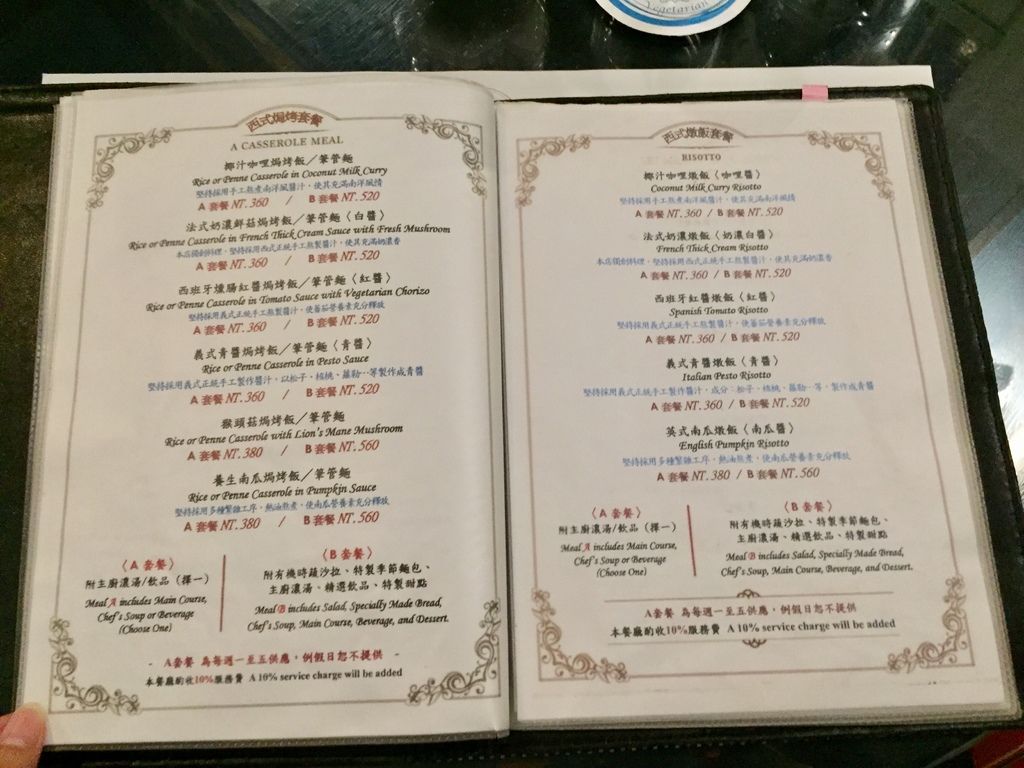 Vegetarian
西式焗烤套餐
A CASSEROLE MEAL
椰汁咖哩焗烤飯／筆管麵
Rice or Penne Casserole in Coconut Milk Curry
堅持採用手工熬煮南洋風醬汁，使其充滿南洋風情
A 套餐 NT. 360 / B 套餐 NT. 520
法式奶濃鮮菇焗烤飯／筆管麵〈白醬〉
Rice or Penne Casserole in French Thick Cream Sauce with Fresh Mushroom
本店獨創料理，堅持採用西式正統手工熬製醬汁，使其充滿奶濃香
A 套餐 NT. 360 / B 套餐 NT. 520
西班牙燻腸紅醬焗烤飯／筆管麵〈紅醬〉
Rice or Penne Casserole in Tomato Sauce with Vegetarian Chorizo
堅持採用義式正統手工熬製醬汁，使蕃茄營養素充分釋放
A 套餐 NT. 360 / B 套餐 NT. 520
義式青醬焗烤飯／筆管麵〈青醬〉
Rice or Penne Casserole in Pesto Sauce
堅持採用義式正統手工製作醬汁，以松子、核桃、蘿勒…等製作成青醬
A 套餐 NT. 360 / B 套餐 NT. 520
猴頭菇焗烤飯／筆管麵
Rice or Penne Casserole with Lion's Mane Mushroom
A 套餐 NT. 380 / B 套餐 NT. 560
養生南瓜焗烤飯／筆管麵
Rice or Penne Casserole in Pumpkin Sauce
堅持採用多種繁雜工序，熱油熬煮，使南瓜營養素充分釋放
A 套餐 NT. 380 / B 套餐 NT. 560
〈A 套餐〉
附主廚濃湯/飲品（擇一）
Meal A includes Main Course,
Chef's Soup or Beverage
(Choose One)
〈B 套餐〉
附有機時蔬沙拉、特製季節麵包、
主廚濃湯、精選飲品、特製甜點
Meal B includes Salad, Specially Made Bread,
Chef's Soup, Main Course, Beverage, and Dessert.
- A套餐 為每週一至五供應，例假日恕不提供 -
本餐廳酌收10%服務費 A 10% service charge will be added
西式燉飯套餐
RISOTTO
椰汁咖哩燉飯〈咖哩醬〉
Coconut Milk Curry Risotto
堅持採用手工熬煮南洋風醬汁，使其充滿南洋風情
A 套餐 NT. 360 / B 套餐 NT. 520
法式奶濃燉飯〈奶濃白醬〉
French Thick Cream Risotto
本店獨創料理，堅持採用西式正統手工熬製醬汁，使其充滿奶濃香
A 套餐 NT. 360 / B 套餐 NT. 520
西班牙紅醬燉飯〈紅醬〉
Spanish Tomato Risotto
堅持採用義式正統手工熬製醬汁，使蕃茄營養素充分釋放
A 套餐 NT. 360 / B 套餐 NT. 520
義式青醬燉飯〈青醬〉
Italian Pesto Risotto
堅持採用義式正統手工製作醬汁，成分：松子、核桃、蘿勒…等，製作成青醬
A 套餐 NT. 360 / B 套餐 NT. 520
英式南瓜燉飯〈南瓜醬〉
English Pumpkin Risotto
堅持採用多種繁雜工序，熱油熬煮，使南瓜營養素充分釋放
A 套餐 NT. 380 / B 套餐 NT. 560
〈A 套餐〉
附主廚濃湯/飲品（擇一）
Meal A includes Main Course,
Chef's Soup or Beverage
(Choose One)
〈B 套餐〉
附有機時蔬沙拉、特製季節麵包、
主廚濃湯、精選飲品、特製甜點
Meal B includes Salad, Specially Made Bread,
Chef's Soup, Main Course, Beverage, and Dessert.
A套餐 為每週一至五供應，例假日恕不提供
本餐廳酌收10%服務費 A 10% service charge will be added